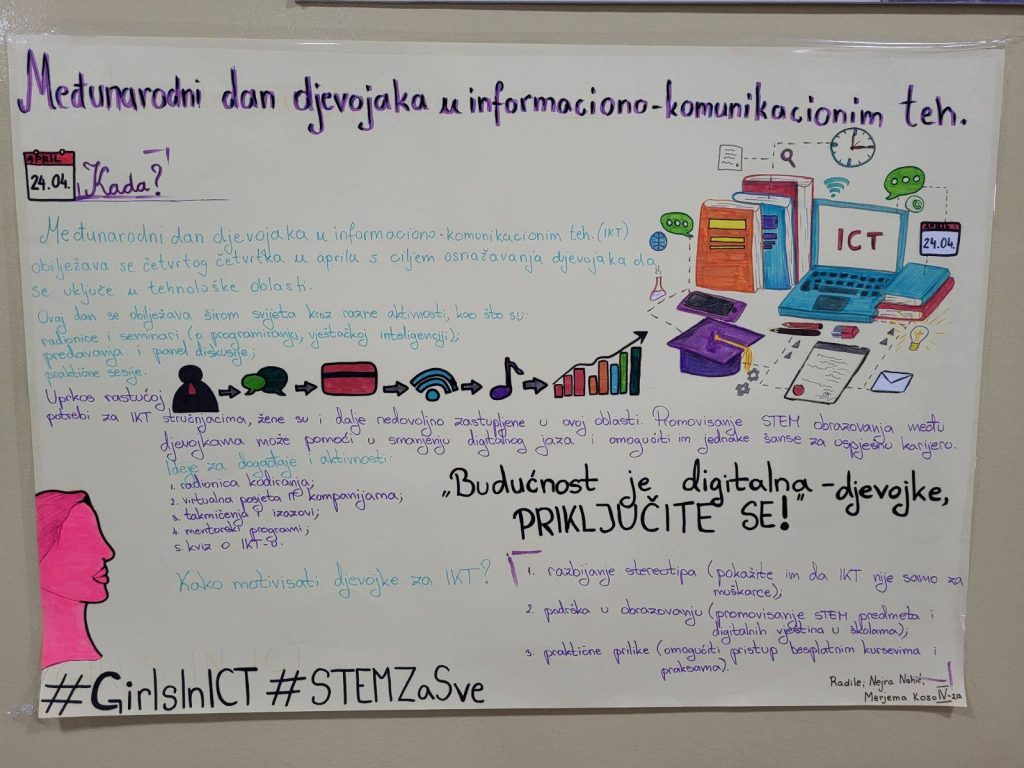 Međunarodni dan djevojaka u informaciono-komunikacionim teh.
APRIL
24.04.
Kada?
Međunarodni dan djevojaka u informaciono-komunikacionim teh. (IKT)
obilježava se četvrtog četvrtka u aprilu s ciljem osnažavanja djevojaka da
se uključe u tehnološke oblasti.
Ovaj dan se obilježava širom svijeta kroz razne aktivnosti, kao što su:
radionice i seminari (o programiranju, vještačkoj inteligenciji);
predavanja i panel diskusije;
praktične sesije.
ICT
24.04.
Uprkos rastućoj
potrebi za IKT stručnjacima, žene su i dalje nedovoljno zastupljene u ovoj oblasti. Promovisanje STEM obrazovanja među
djevojkama može pomoći u smanjenju digitalnog jaza i omogućiti im jednake šanse za uspješnu karijeru.
Ideje za događaje i aktivnosti:
1. radionica kodiranja;
2. virtualna posjeta IT kompanijama;
3. takmičenja i izazovi;
4. mentorski programi;
5. kviz o IKT-u.
„Budućnost je digitalna - djevojke,
PRIKLJUČITE SE!"
Kako motivisati djevojke za IKT?
1. razbijanje stereotipa (pokažite im da IKT nije samo za
muškarce);
2. podrška u obrazovanju (promovisanje STEM predmeta i
digitalnih vještina u školama);
3. praktične prilike (omogućiti pristup besplatnim kursevima i
praksama).
#GirlsInICT #STEMZaSve
Radile: Nejra Nahić,
Merjema Koso IV-2a